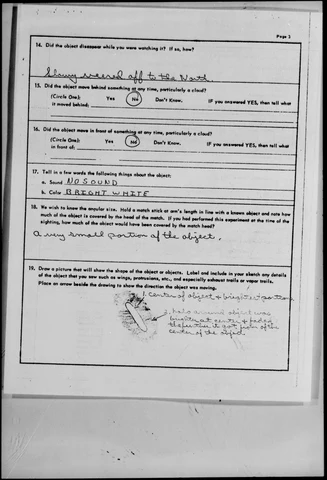 Page 3
14. Did the object disappear while you were watching it? If so, how?
veered off to the North.
15. Did the object move behind something at any time, particularly a cloud?
(Circle One): Yes No Don't Know. IF you answered YES, then tell what
it moved behind:
16. Did the object move in front of something at any time, particularly a cloud?
(Circle One): Yes No Don't Know. IF you answered YES, then tell what
in front of:
17. Tell in a few words the following things about the object:
a. Sound NO SOUND
b. Color BRIGHT WHITE
18. We wish to know the angular size. Hold a match stick at arm's length in line with a known object and note how
much of the object is covered by the head of the match. If you had performed this experiment at the time of the
sighting, how much of the object would have been covered by the match head?
A very small portion of the object.
19. Draw a picture that will show the shape of the object or objects. Label and include in your sketch any details
of the object that you saw such as wings, protrusions, etc., and especially exhaust trails or vapor trails.
Place an arrow beside the drawing to show the direction the object was moving.
1. Center of object & brightest portion
2. halo around object was
brighter at center & faded
the further it got from the
center of the object.